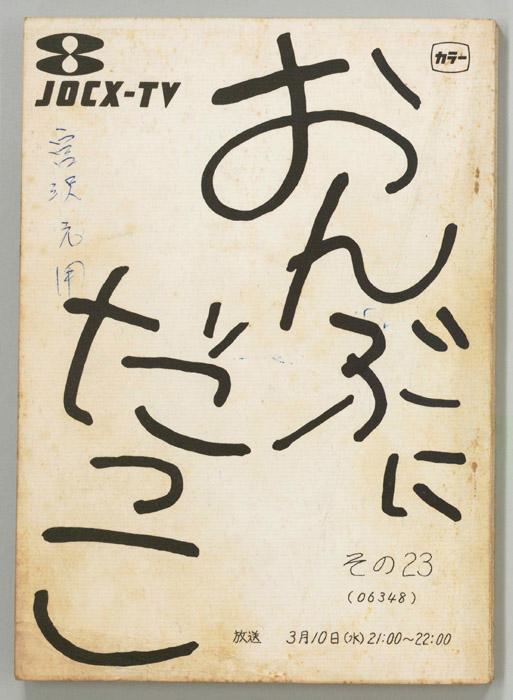 8
JOCX-TV
カラー
おんぶに
だっこ
その23
(06348)
放送 3月10日(水)21:00〜22:00